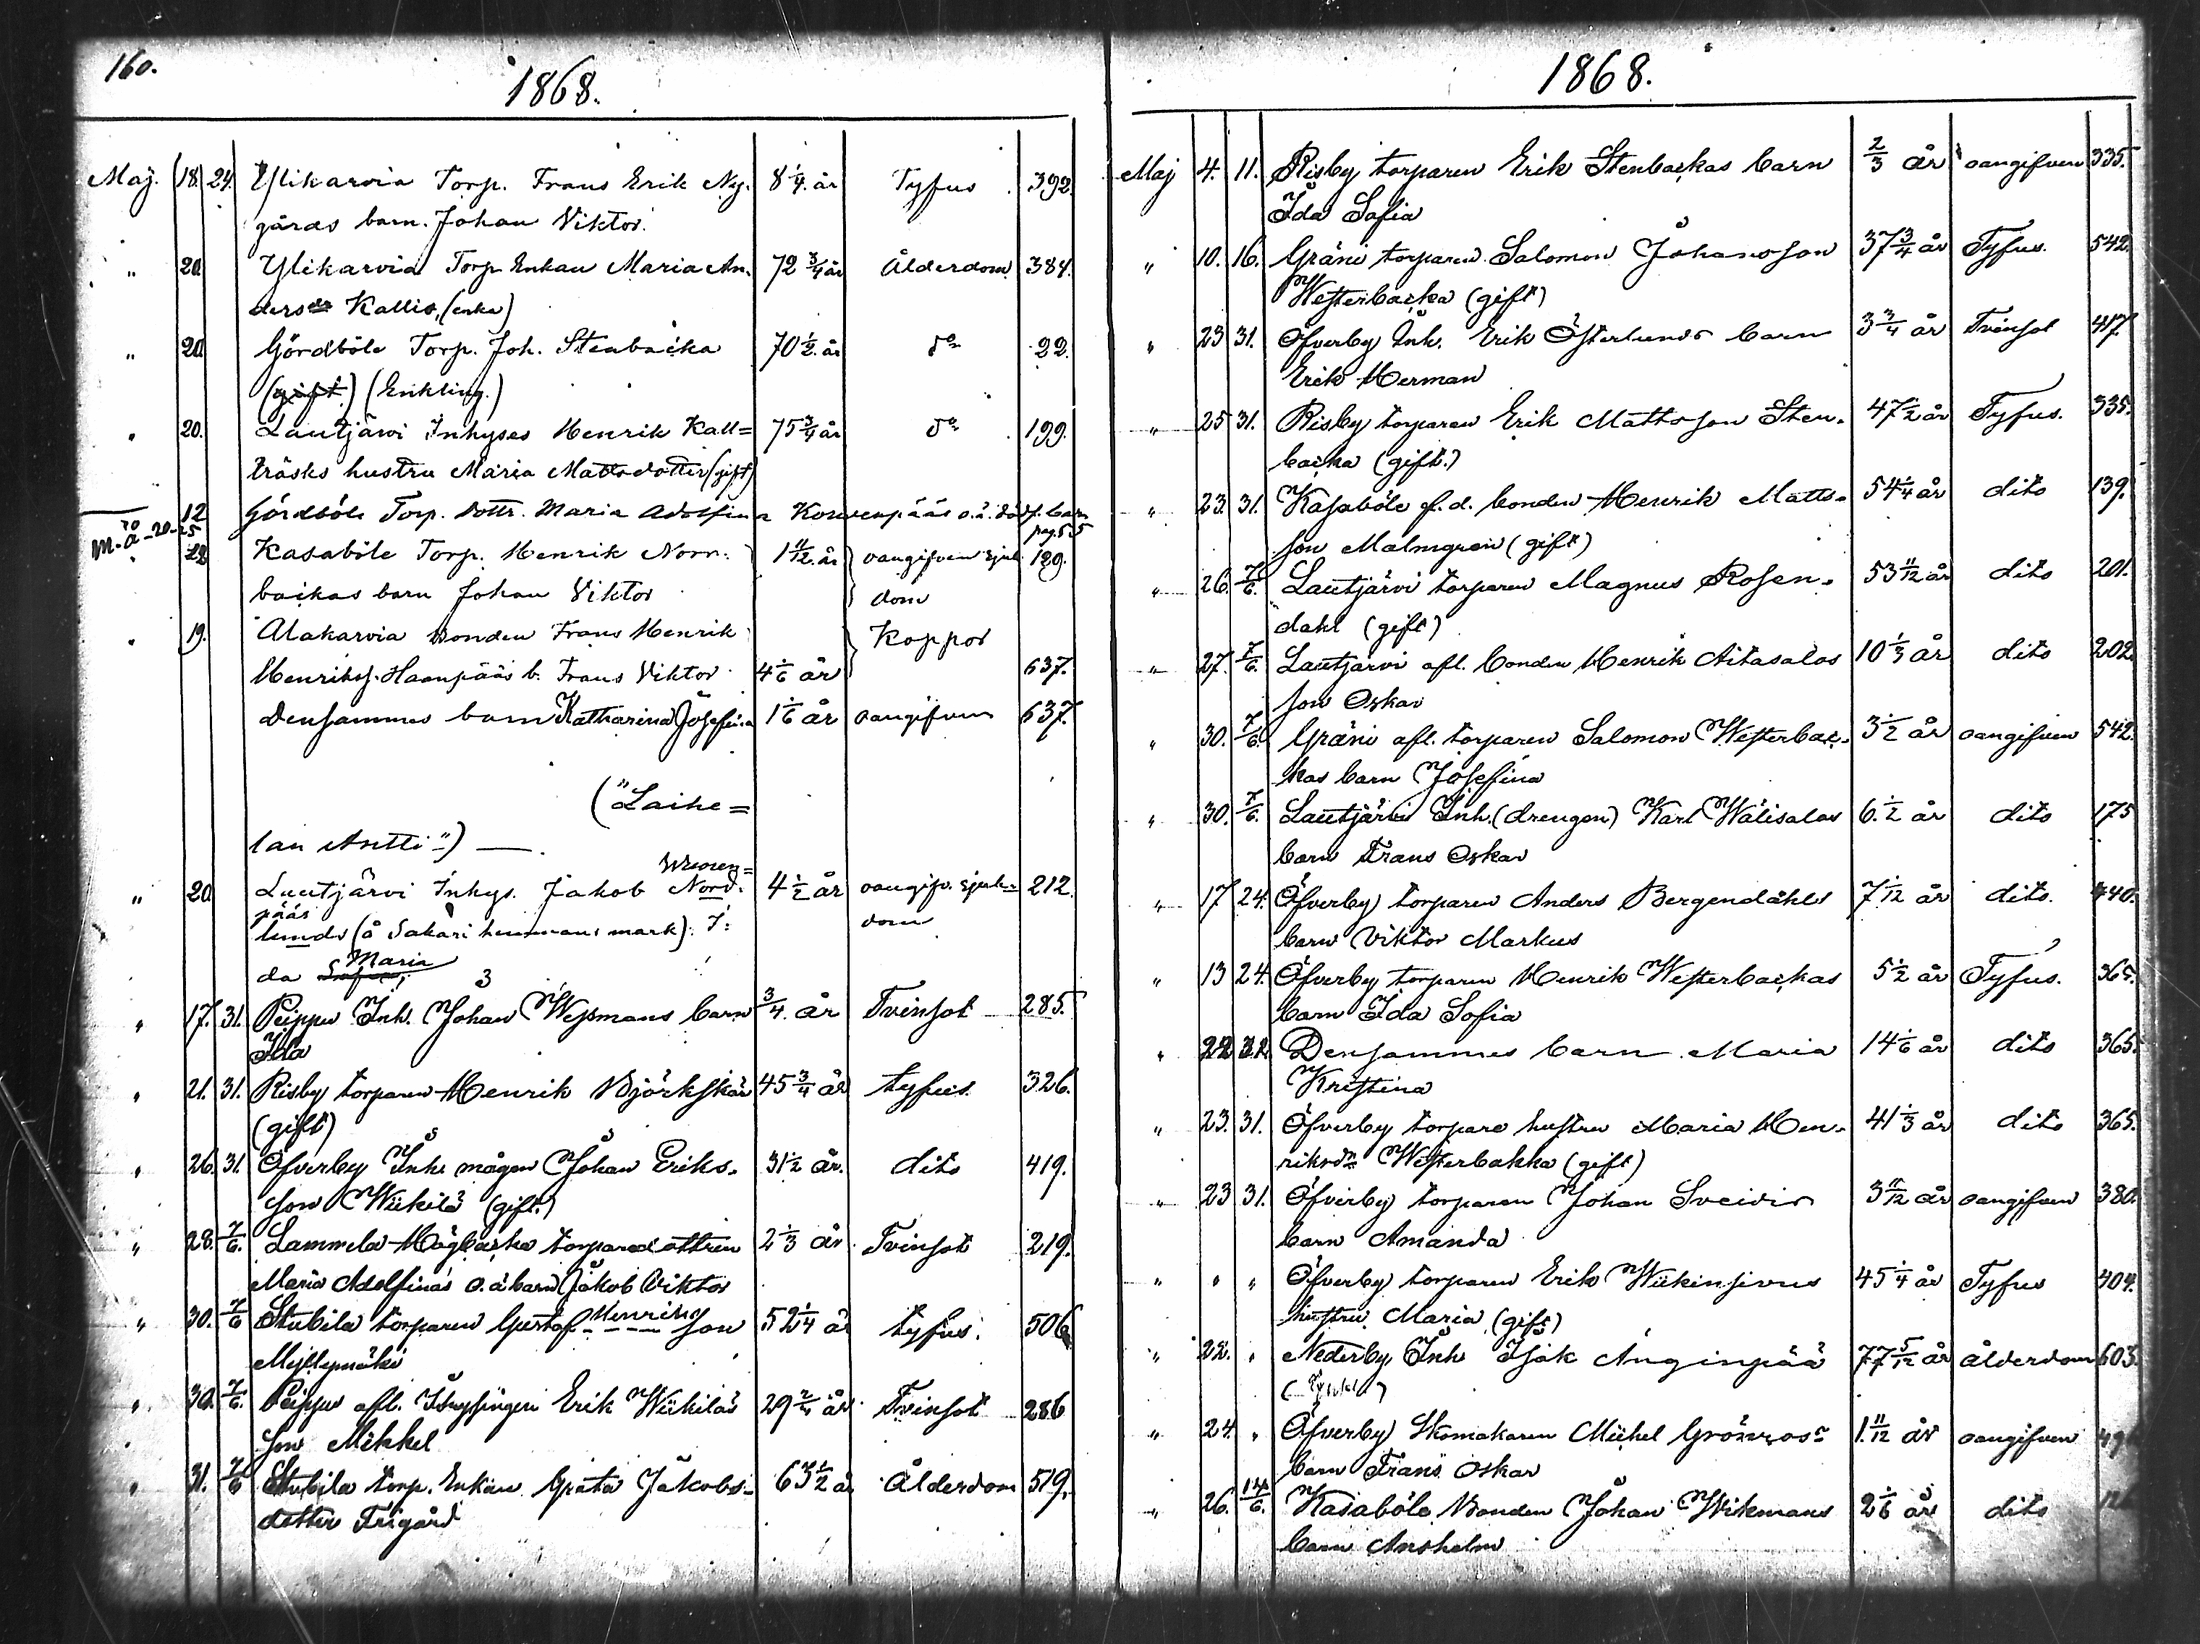 160.
1868.
Maj. 18. 24. Ylikarvia Torp. Frans Erik Ny- 8 1/4 år Tyfus 392.
gårds barn. Johan Viktor.
" 20. Ylikarvia Torp. Enkan Maria An- 72 3/4 år Ålderdom 384.
dersdr Kallio, (enka)
" 20 Gördböle Torp. Joh. Stenbacka 70 1/2 år do 22.
(gift.) (Enkling.)
" 20. Lautjärvi Inhyses Henrik Kall= 75 3/4 år do 199.
träsks hustru Maria Mattsdotter (gift)
12 Gördböle Torp. dottr. Maria Adolfina o.ä. död f. barn
m. å - 20-25 pag. 55
" 22 Kasaböle Torp. Henrik Norr- 1 11/12 år oangifven sjuk 129.
backas barn Johan Viktor dom
" 19. Alakarvia Bonden Frans Henrik Koppor
Henriks. Haanpääs b. Frans Viktor 4 1/6 år 637.
Densammes barn Katharina Josefina 1 1/6 år oangifven 637.
("Laihe=
lan Antti") —
" 20 Luutjärvi Inhys. Jakob Nord- 4 1/2 år oangifv. sjuk= 212.
pääs
lunds (å Sakari hemmans mark). I: dom
da Sofia; Maria
" 17. 31. Peippu Inh. Johan Weysmans barn 3/4 år Tvinsot 285.
Ida
" 21. 31. Risby torparen Henrik Björkskär 45 3/4 år tyfus. 326.
(gift)
" 26. 31. Öfverby Inh. mågen Johan Eriks- 31 1/2 år. dito 419.
son Wiikilä (gift.)
" 28. 7/6. Lammela Högbacka torparedottren 2 1/3 år Tvinsot 219.
Maria Adolfinas o.ä. barn Jakob Viktor
" 30. 7/6 Stubila torparen Gustaf Henriksson 52 1/4 år tyfus. 506
Myllymäki
" 30. 7/6. Peippu afl. Inhysingen Erik Wiikiläs 29 2/4 år Tvinsot 286
son Mikkel
" 31. 7/6 Stubila torp. Enkan Greta Jakobs- 63 1/2 år Ålderdom 519.
dotter Frigård
1868.
Maj 4. 11. Risby torparen Erik Stenbackas barn 2/3 år oangifven 335.
Ida Sofia
" 10. 16. Gräni torparen Salomon Johansson 37 3/4 år Tyfus. 542.
Westerbacka (gift)
" 23 31. Öfverby Inh. Erik Österlunds barn 3 3/4 år Tvinsot 417.
Erik Herman
" 25 31. Risby torparen Erik Mattsson Sten- 47 1/2 år Tyfus. 335.
backa (gift.)
" 23. 31. Kasaböle f.d. bonden Henrik Matts- 54 1/4 år dito 139.
son Malmgren (gift)
" 26. 7/6. Lautjärvi torparen Magnus Rosen- 53 11/12 år dito 201.
dahl (gift)
" 27. 7/6. Lautjärvi afl. bonden Henrik Aitasalos 10 1/3 år dito 202.
son Oskar
" 30. 7/6. Gräni afl. torparen Salomon Westerbac- 3 1/2 år oangifven 542.
kas barn Josefina
" 30. 7/6. Lautjärvi Inh. (drengen) Karl Wälisalos 6 1/2 år dito 175
barn Frans Oskar
" 17 24. Öfverby torparen Anders Bergendahls 7 1/12 år dito. 440.
barn Viktor Markus
" 13 24. Öfverby torparen Henrik Westerbackas 5 1/2 år Tyfus. 365.
barn Ida Sofia
" 22 Densammes barn Maria 14 1/6 år dito 365.
Kristina
" 23. 31. Öfverby torpare hustru Maria Hen- 41 1/3 år dito 365.
riksdr Westerbakka (gift)
" 23 31. Öfverby torparen Johan Sveidis 3 11/12 år oangifven 380.
barn Amanda
" " " Öfverby torparen Erik Wiikinsivus 45 1/4 år Tyfus 404.
hustru Maria (gift)
" 22. " Nederby Inh Isak Anginpää 77 5/12 år ålderdom 603.
" 24. " Öfverby Skomakaren Mickel Grönroos 1 11/12 år oangifven
barn Frans Oskar
" 26. 14/6. Kasaböle Bonden Johan Wikmans 2 1/6 år dito
barn Anshelm